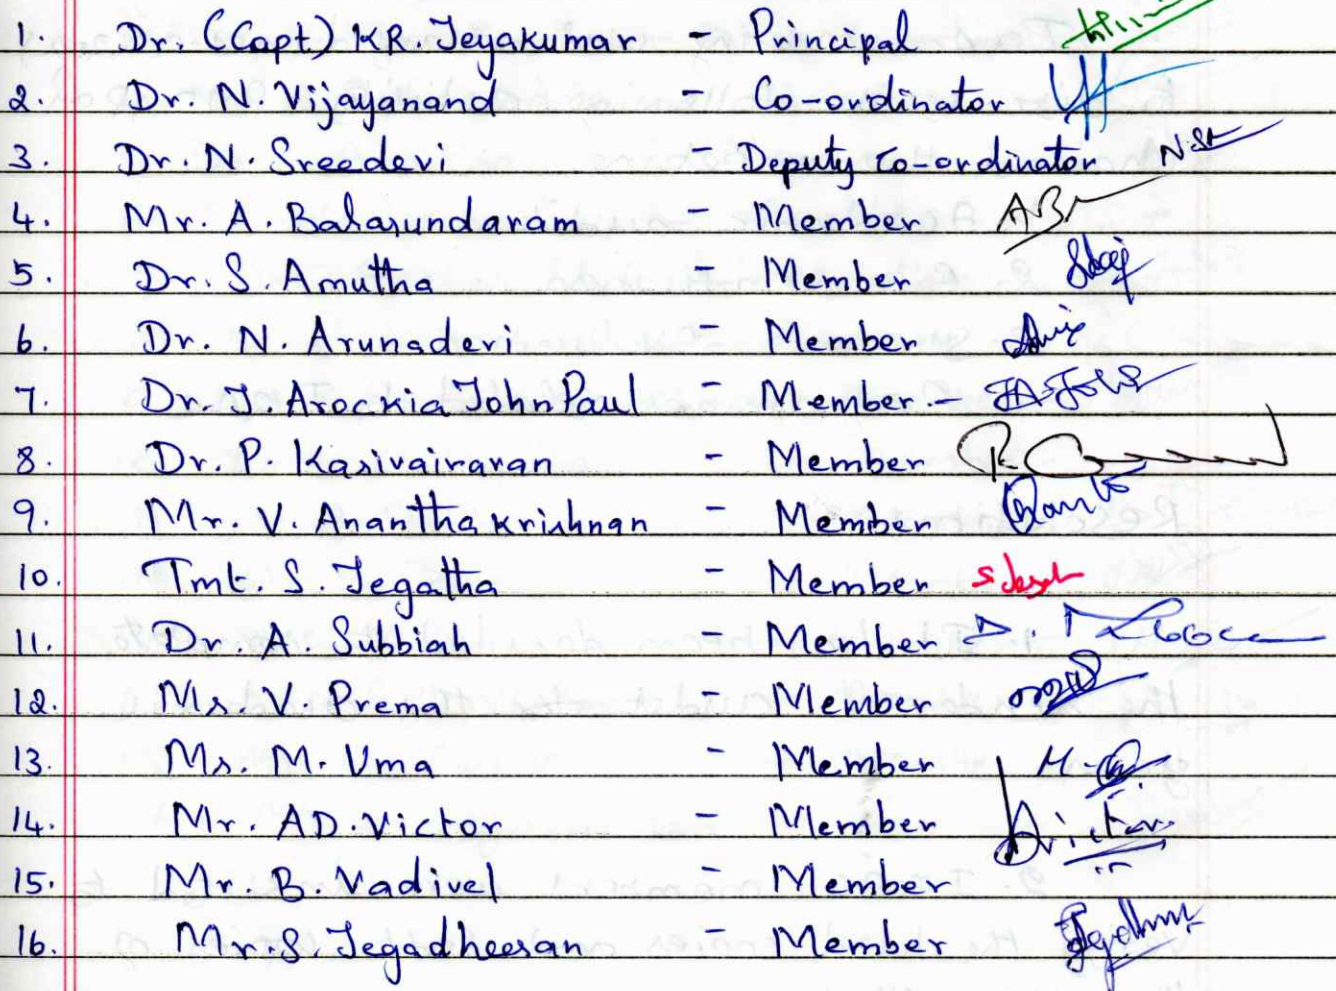 1. Dr. (Capt) KR. Jeyakumar - Principal
2. Dr. N. Vijayanand - Co-ordinator
3. Dr. N. Sreedevi - Deputy Co-ordinator
4. Mr. A. Balasundaram - Member
5. Dr. S. Amutha - Member
6. Dr. N. Arunadevi - Member
7. Dr. J. Arockia John Paul - Member -
8. Dr. P. Kasivairavan - Member
9. Mr. V. Ananthakrishnan - Member
10. Tmt. S. Jegatha - Member
11. Dr. A. Subbiah - Member
12. Ms. V. Prema - Member
13. Ms. M. Uma - Member
14. Mr. AD. Victor - Member
15. Mr. B. Vadivel - Member
16. Mr. S. Jegadheesan - Member